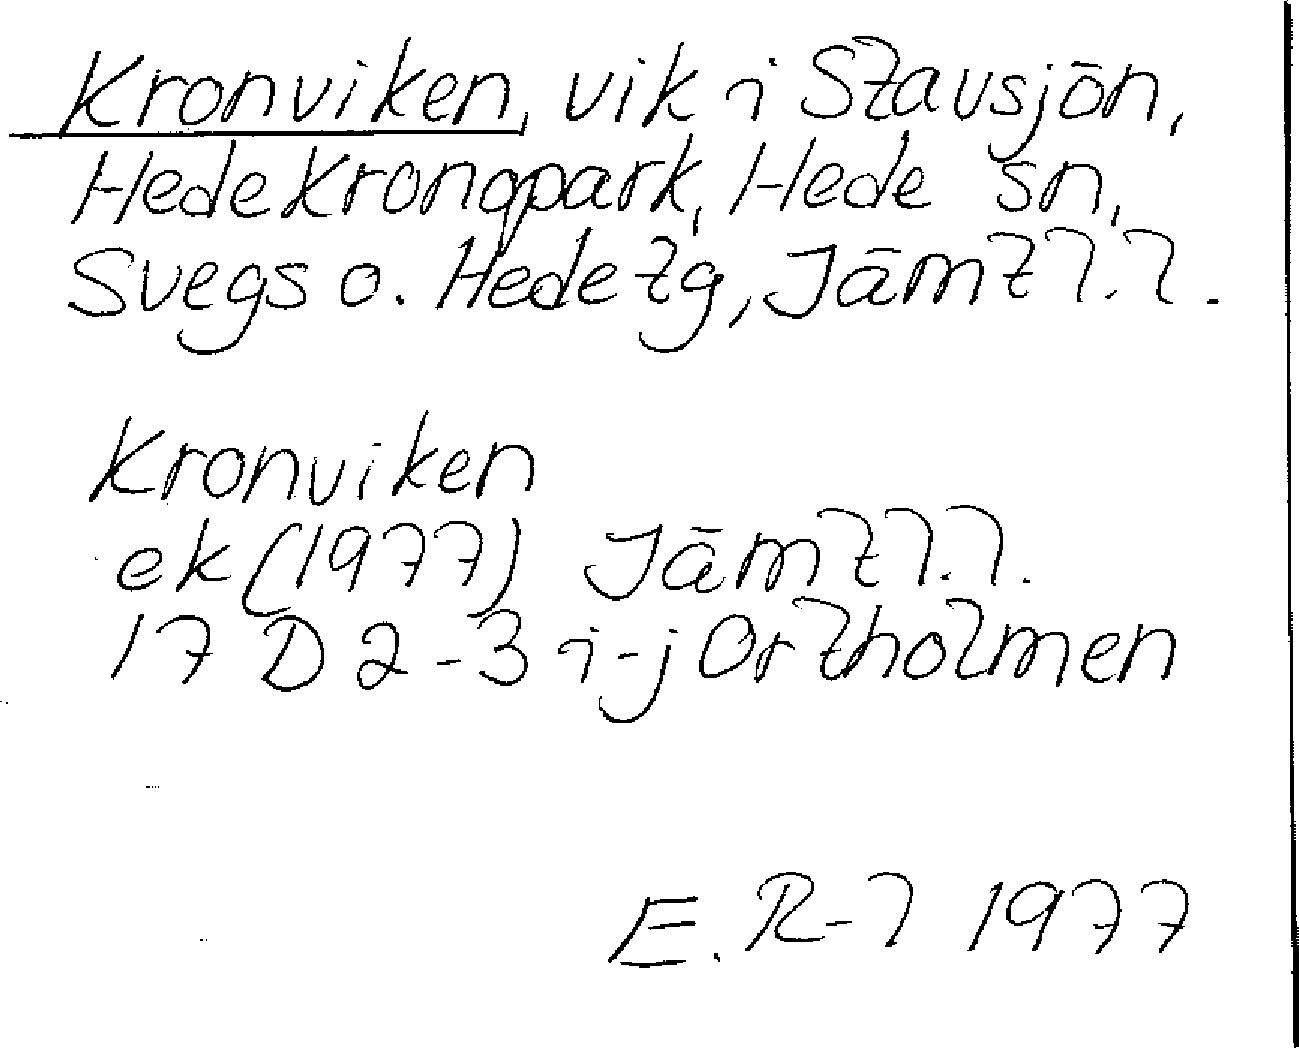 Kronviken, vik i Stavsjön,
Hede kronopark, Hede sn,
Svegs o. Hede tg, Jämtl.l.
Kronviken
ek (1977) Jämtl.l.
17 D 2-3 i-j Ortholmen
E. R-l 1977